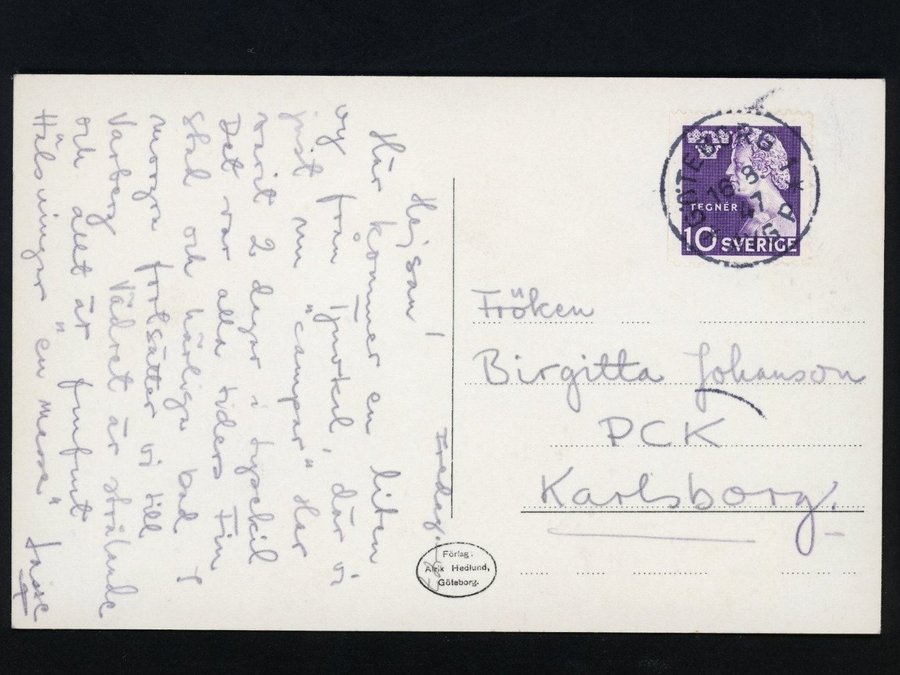 Fredag.
Hejsan!
Här kommer en liten
vy från där vi
just nu "campar" Har
varit 2 dagar i Lysekil
Det var alla tiders fin
stad och härliga bad I
morgon fortsätter vi till
Varberg. Vädret är strålande
och allt är finfint
Hälsningar "en masse"
Lasse
GÖTEBORG 1
16.8.
47
TEGNÉR
10 SVERIGE
Fröken
Birgitta Johanson
PCK
Karlsborg.
Förlag.
Alrik Hedlund,
Göteborg.